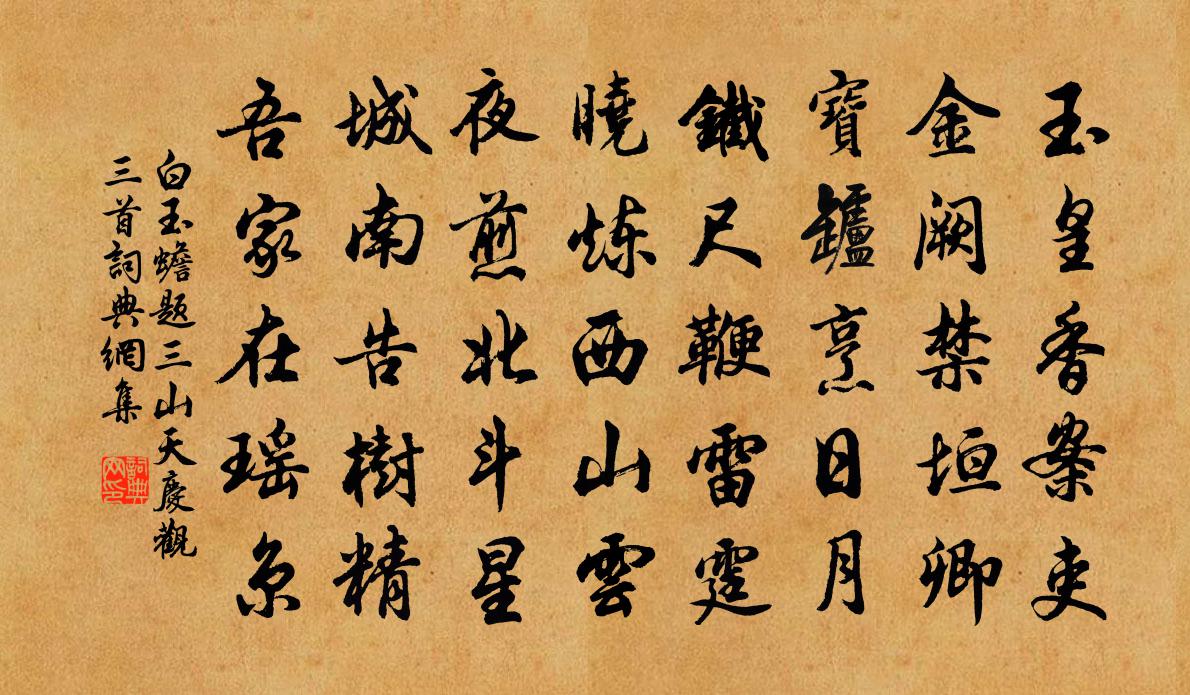 玉皇香案吏
金闕禁垣卿
寶鑪烹日月
鐵尺鞭雷霆
曉炼西山雲
夜煎北斗星
城南告樹精
吾家在瑶京
白玉蟾题三山天慶觀
三首詞典網集
詞典
网印